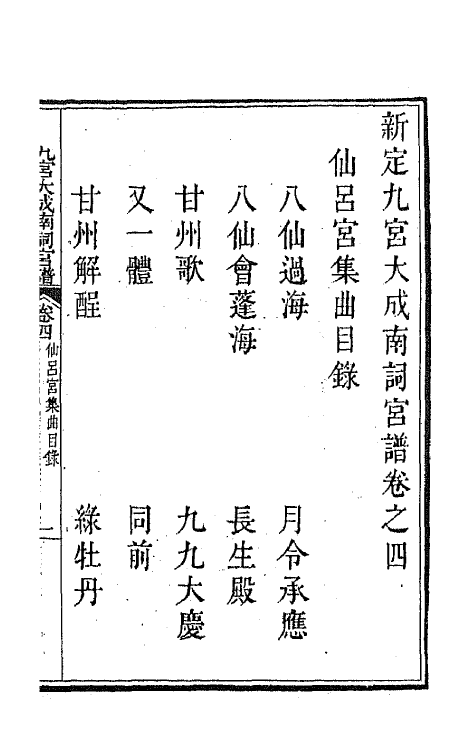 新定九宮大成南詞宮譜卷之四
仙呂宮集曲目錄
八仙過海 月令承應
八仙會蓬海 長生殿
甘州歌 九九大慶
又一體 同前
甘州解酲 綠牡丹
九宮大成南詞宮譜 卷四 仙呂宮集曲目錄 一